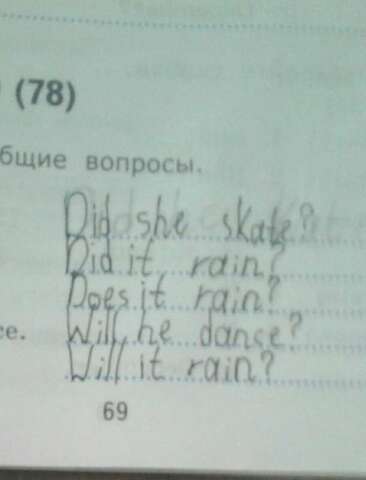 (78)
бщие вопросы.
Did she skate?
Did it rain?
Does it rain?
Will he dance?
се.
Will it rain?
69